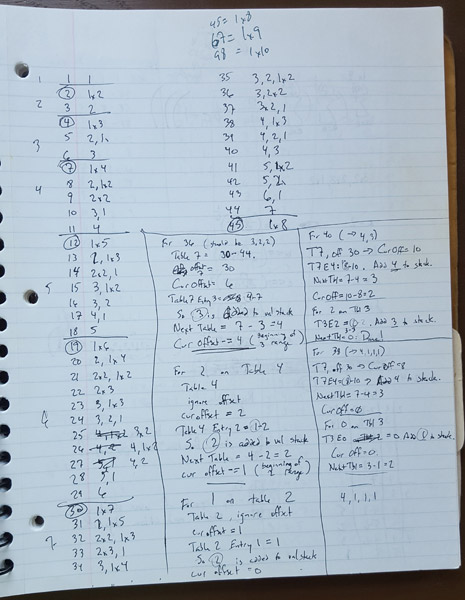 45 = 1x8
67 = 1x9
98 = 1x10
1 1 1
2 1x2
2 3 2
4 1x3
5 2, 1
3 6 3
7 1x4
4 8 2, 1x2
9 2x2
10 3, 1
11 4
12 1x5
13 2, 1x3
14 2x2, 1
5 15 3, 1x2
16 3, 2
17 4, 1
18 5
19 1x6
20 2, 1x4
21 2x2, 1x2
22 2x3
23 3, 1x3
6 24 3, 2, 1
25 3x2
26 4, 1x2
27 4, 2
28 5, 1
29 6
30 1x7
31 2, 1x5
7 32 2x2, 1x3
33 2x3, 1
34 3, 1x4
35 3, 2, 1x2
36 3, 2x2
37 3x2, 1
38 4, 1x3
39 4, 2, 1
40 4, 3
41 5, 1x2
42 5, 2
43 6, 1
44 7
45 1x8
For 36 (should be 3,2,2)
Table 7 = 30-44.
offset = 30
Cur Offset = 6
Table 7 Entry 3 = 4-7
So 3 is added to val stack
Next Table = 7 - 3 = 4
Cur Offset -= 4 (beginning of 3 range)
For 2 on Table 4
Table 4
ignore offset
cur offset = 2
Table 4 Entry 2 = 1-2
So 2 is added to val stack
Next Table = 4 - 2 = 2
cur offset -= 1 (beginning of range)
For 1 on table 2
Table 2, ignore offset
cur offset = 1
Table 2 Entry 1 = 1
So 2 is added to val stack
cur offset = 0
For 40 (→ 4,3)
T7, off 30 → Cur Off = 10
T7E4 = 8-10. Add 4 to stack.
Next Tbl = 7-4 = 3
Cur Off = 10-8 = 2
For 2 on Tbl 3
T3E2 = Add 3 to stack
Next Tbl = 0: Done!
For 38 (→ 4,1,1,1)
T7, off 30 → Cur Off = 8
T7E4 = 8-10 → Add 4 to stack.
Next Tbl = 7-4 = 3
Cur Off = 0
For 0 on Tbl 3
T3E0 = 0 Add 1 to stack
Cur Off = 0.
Next Tbl = 3-1 = 2
4, 1, 1, 1